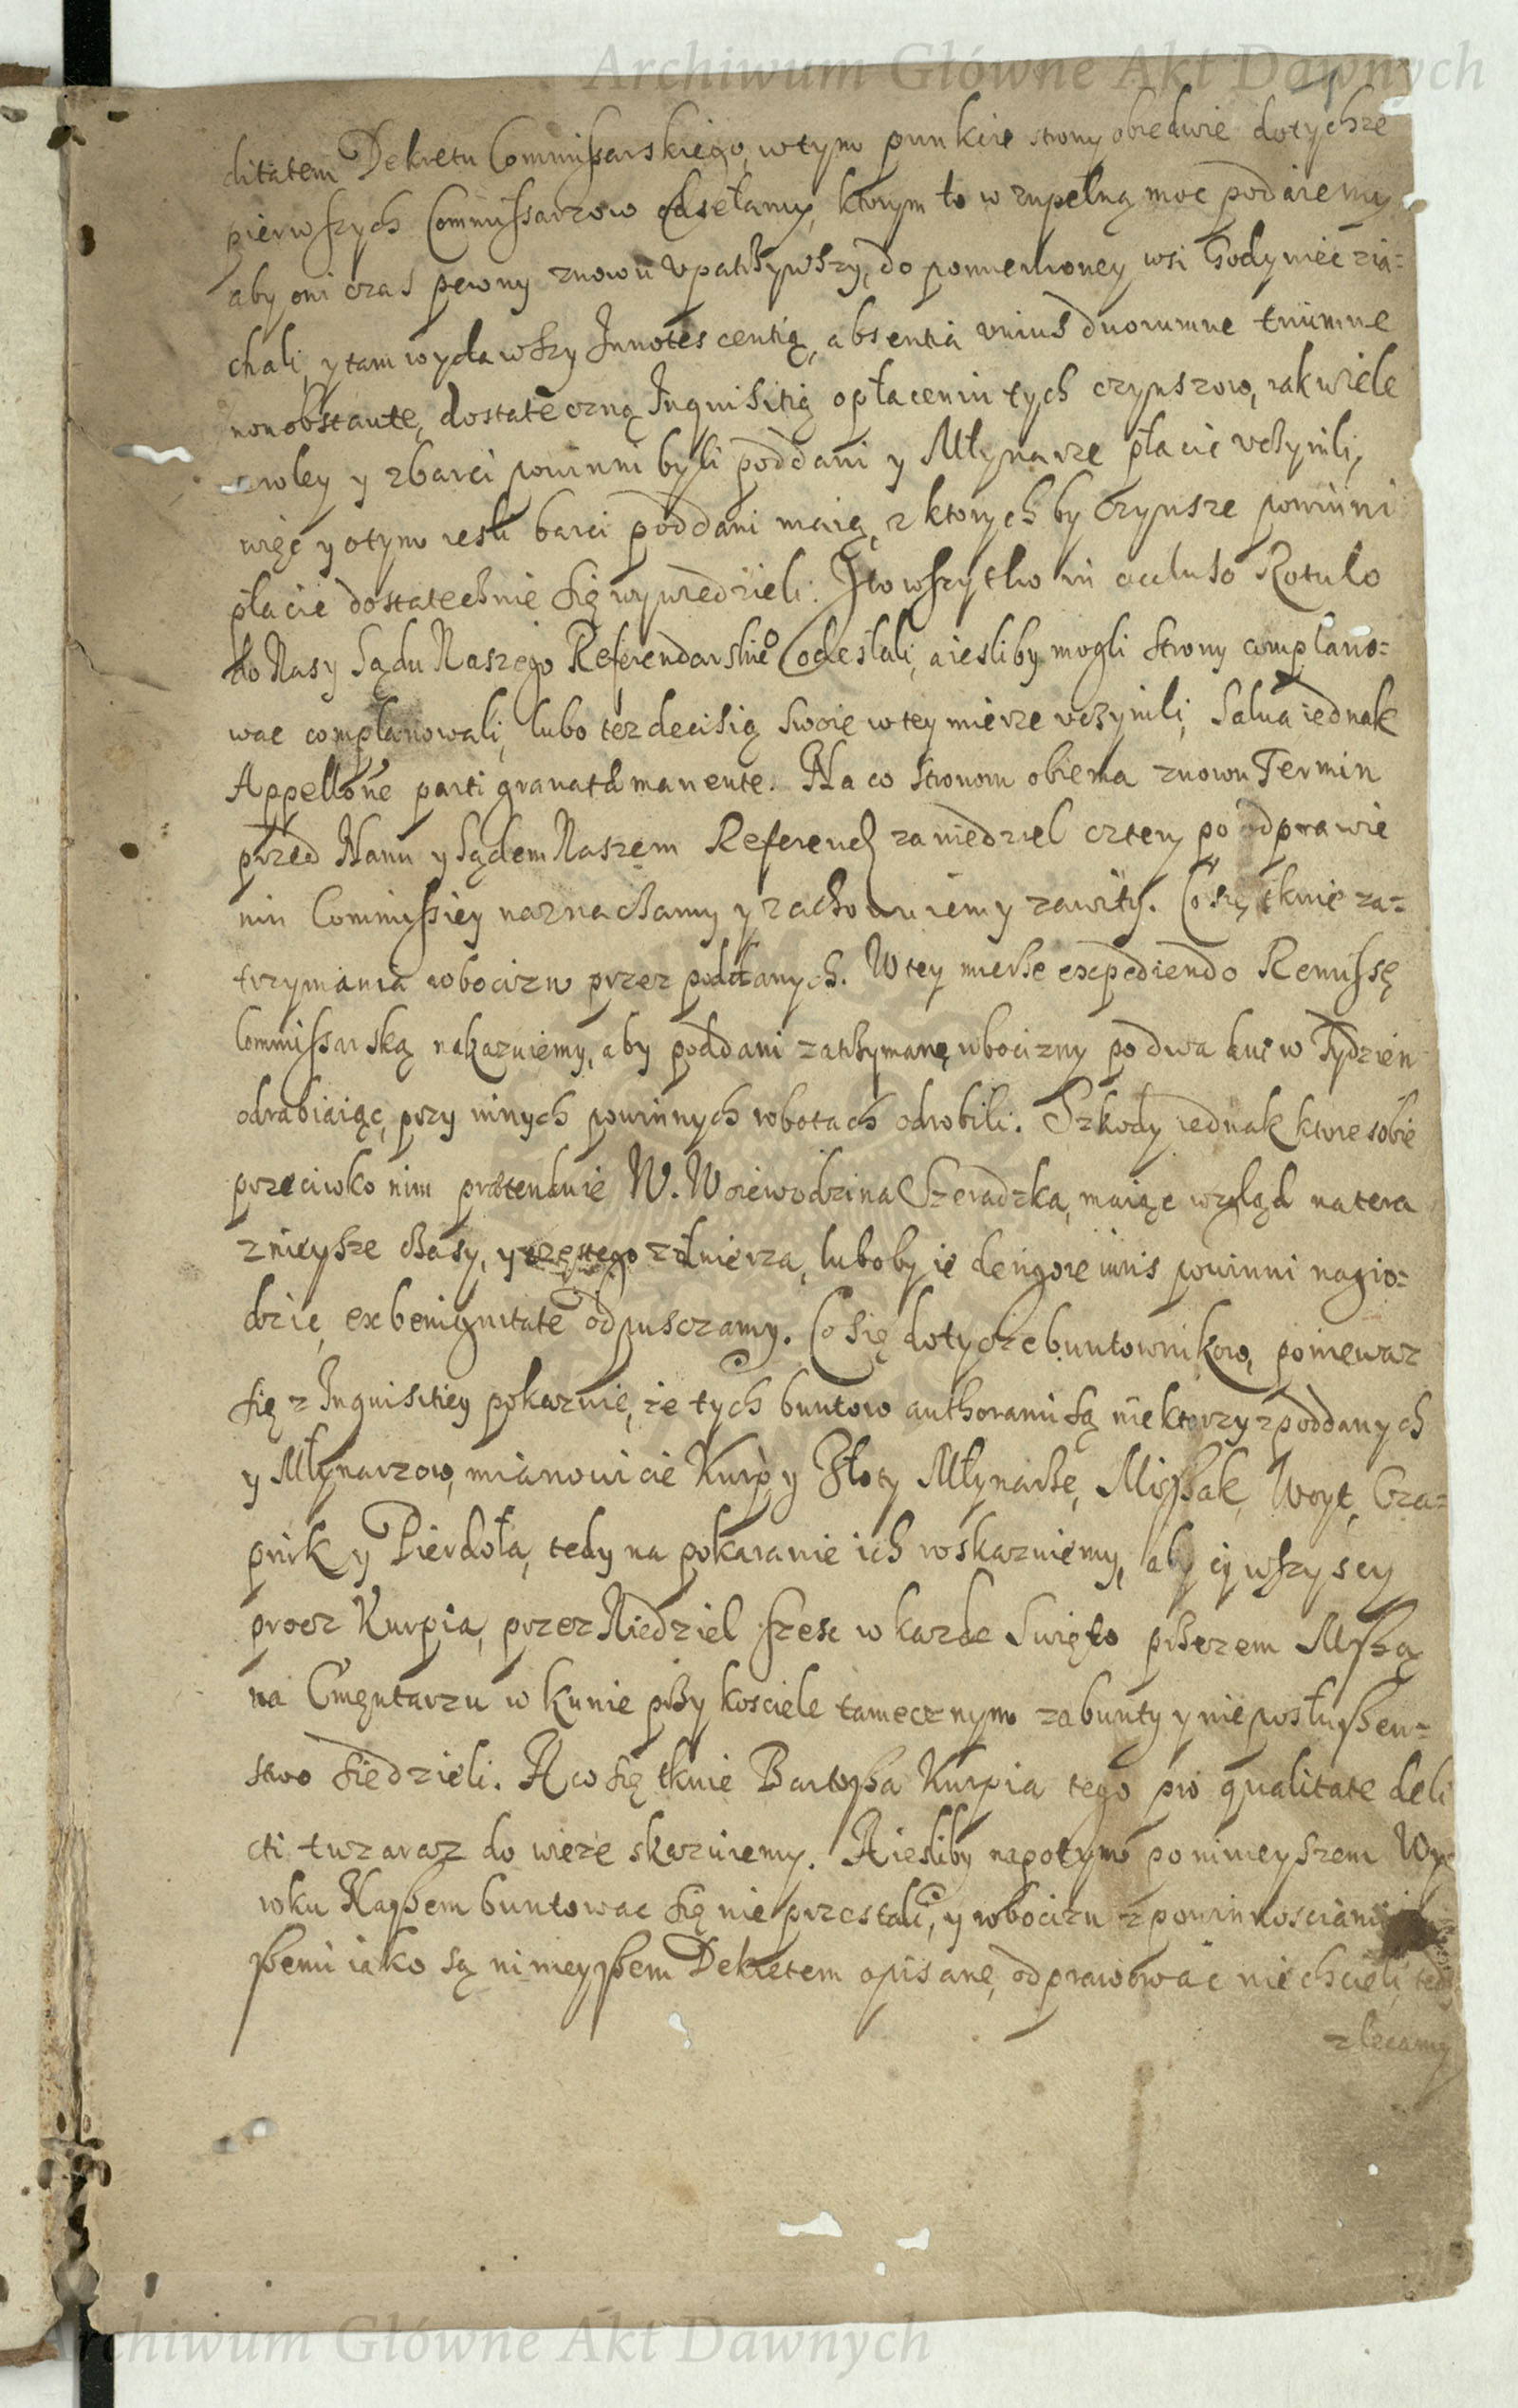 Archiwum Główne Akt Dawnych
ditatem Dekretu Commissarskiego, w tym punkcie strony obiedwie dotychze
pierwszych Commissarzow odsełamy, ktorym to w zupełną moc podaiemy
aby oni czas pewny znowu vpatrzywszy, do pomienioney wsi Godyniec zia=
chali, y tam wydawszy Innotescentią, absentia vnius duorumue triumue
non obstante, dostateczną Inquisitią o płaceniu tych czynszow, iak wiele
z roley y z barci powinni byli poddani y Młynarze płacic vczynili,
więc y o tym iesli barci poddani maią, z ktorych by czynsze powinni
płacic dostatecznie się wywiedzieli. I to wszytko in occluso Rotulo
do Nas y Sądu Naszego Referendarskie° odesłali, a iesliby mogli strony complano=
wac complanowali, lubo tez decisią swoie w tey mierze vczynili, Salua iednak
Appellone parti grauatae manente. Na co stronom obiema znowu Termin
przed Nami y Sądem Naszem Referend za niedziel cztery po odprawie
niu Commissiey naznaczamy y zachowuiemy zawity. Co się tknie za=
trzymania robocizn przez poddanych. W tey mierze expediendo Remissę
Commissarską nakazuiemy, aby poddani zatrzymane robocizny po dwa dni w Tydzien
odrabiaiąc, przy innych powinnych robotach odrobili. Szkody iednak ktore sobie
przeciwko nim praetenduie W. Woiewodzina Sieradzka, maiąc wzgląd na tera
znieysze czasy, y częstego zołnierza, luboby ie de rigore iuris powinni nagro=
dzic, ex benignitate odpusczamy. Co się dotycze buntownikow, poniewaz
się z Inquisitiey pokazuie, ze tych buntow authorami są niektorzy z poddanych
y Młynarzow, mianowicie Kurp y Złoty Młynarze, Misztak, Woyt, Cza=
pnik y Pierdoła, tedy na pokaranie ich roskazuiemy, aby ci wszyscy
procz Kurpia, przez Niedziel szesc w kazde Swięto przezem Mszą
na Cmęntarzu w kunie przy kosciele tamecznym za bunty y nieposłuszen=
stwo siedzieli. A co się tknie Bartosza Kurpia tego pro qualitate deli
cti tu zaraz do wieze skazuiemy. A iesliby napotym po ninieyszem Wy=
roku Naszem buntowac się nie przestali, y robocizn z powinnosciami
szemi iako są ninieyszem Dekretem opisane, odprawowac nie chcieli, tedy
zlecamy
Archiwum Główne Akt Dawnych